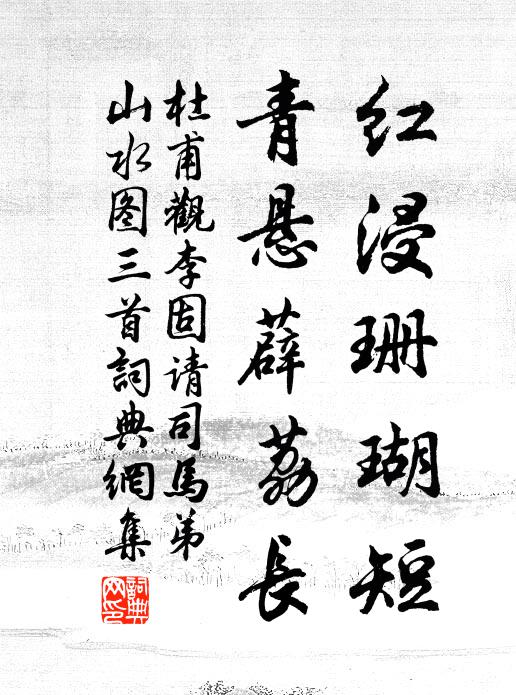 红浸珊瑚短
青悬薜荔長
杜甫觀李固请司馬弟
山水图三首詞典網集
詞典
网印